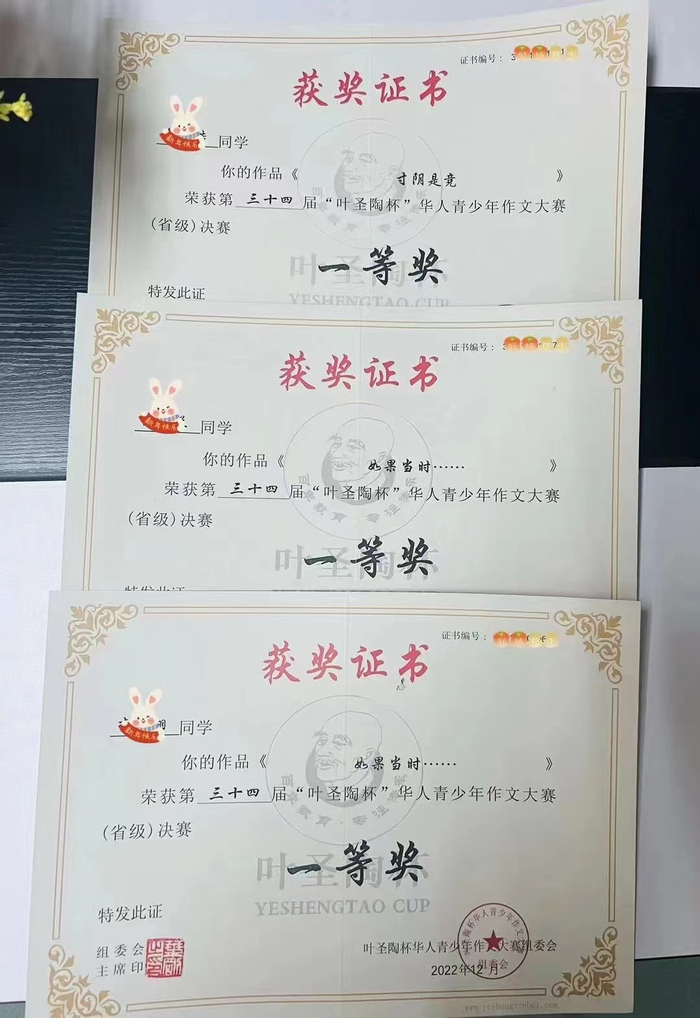 证书编号：3
获奖证书
新年快乐
同学
你的作品《 寸阴是竞 》
荣获第 三十四 届“叶圣陶杯”华人青少年作文大赛
(省级)决赛
叶圣陶杯
一等奖
YESHENGTAO CUP
特发此证
证书编号：
获奖证书
新年快乐
同学
你的作品《 如果当时…… 》
荣获第 三十四 届“叶圣陶杯”华人青少年作文大赛
(省级)决赛
叶圣陶杯
一等奖
特发此证
证书编号：
获奖证书
新年快乐
同学
你的作品《 如果当时…… 》
荣获第 三十四 届“叶圣陶杯”华人青少年作文大赛
(省级)决赛
叶圣陶杯
一等奖
YESHENGTAO CUP
特发此证
组委会
主席印
叶圣陶杯华人青少年作文大赛组委会
组委会
2022年12月